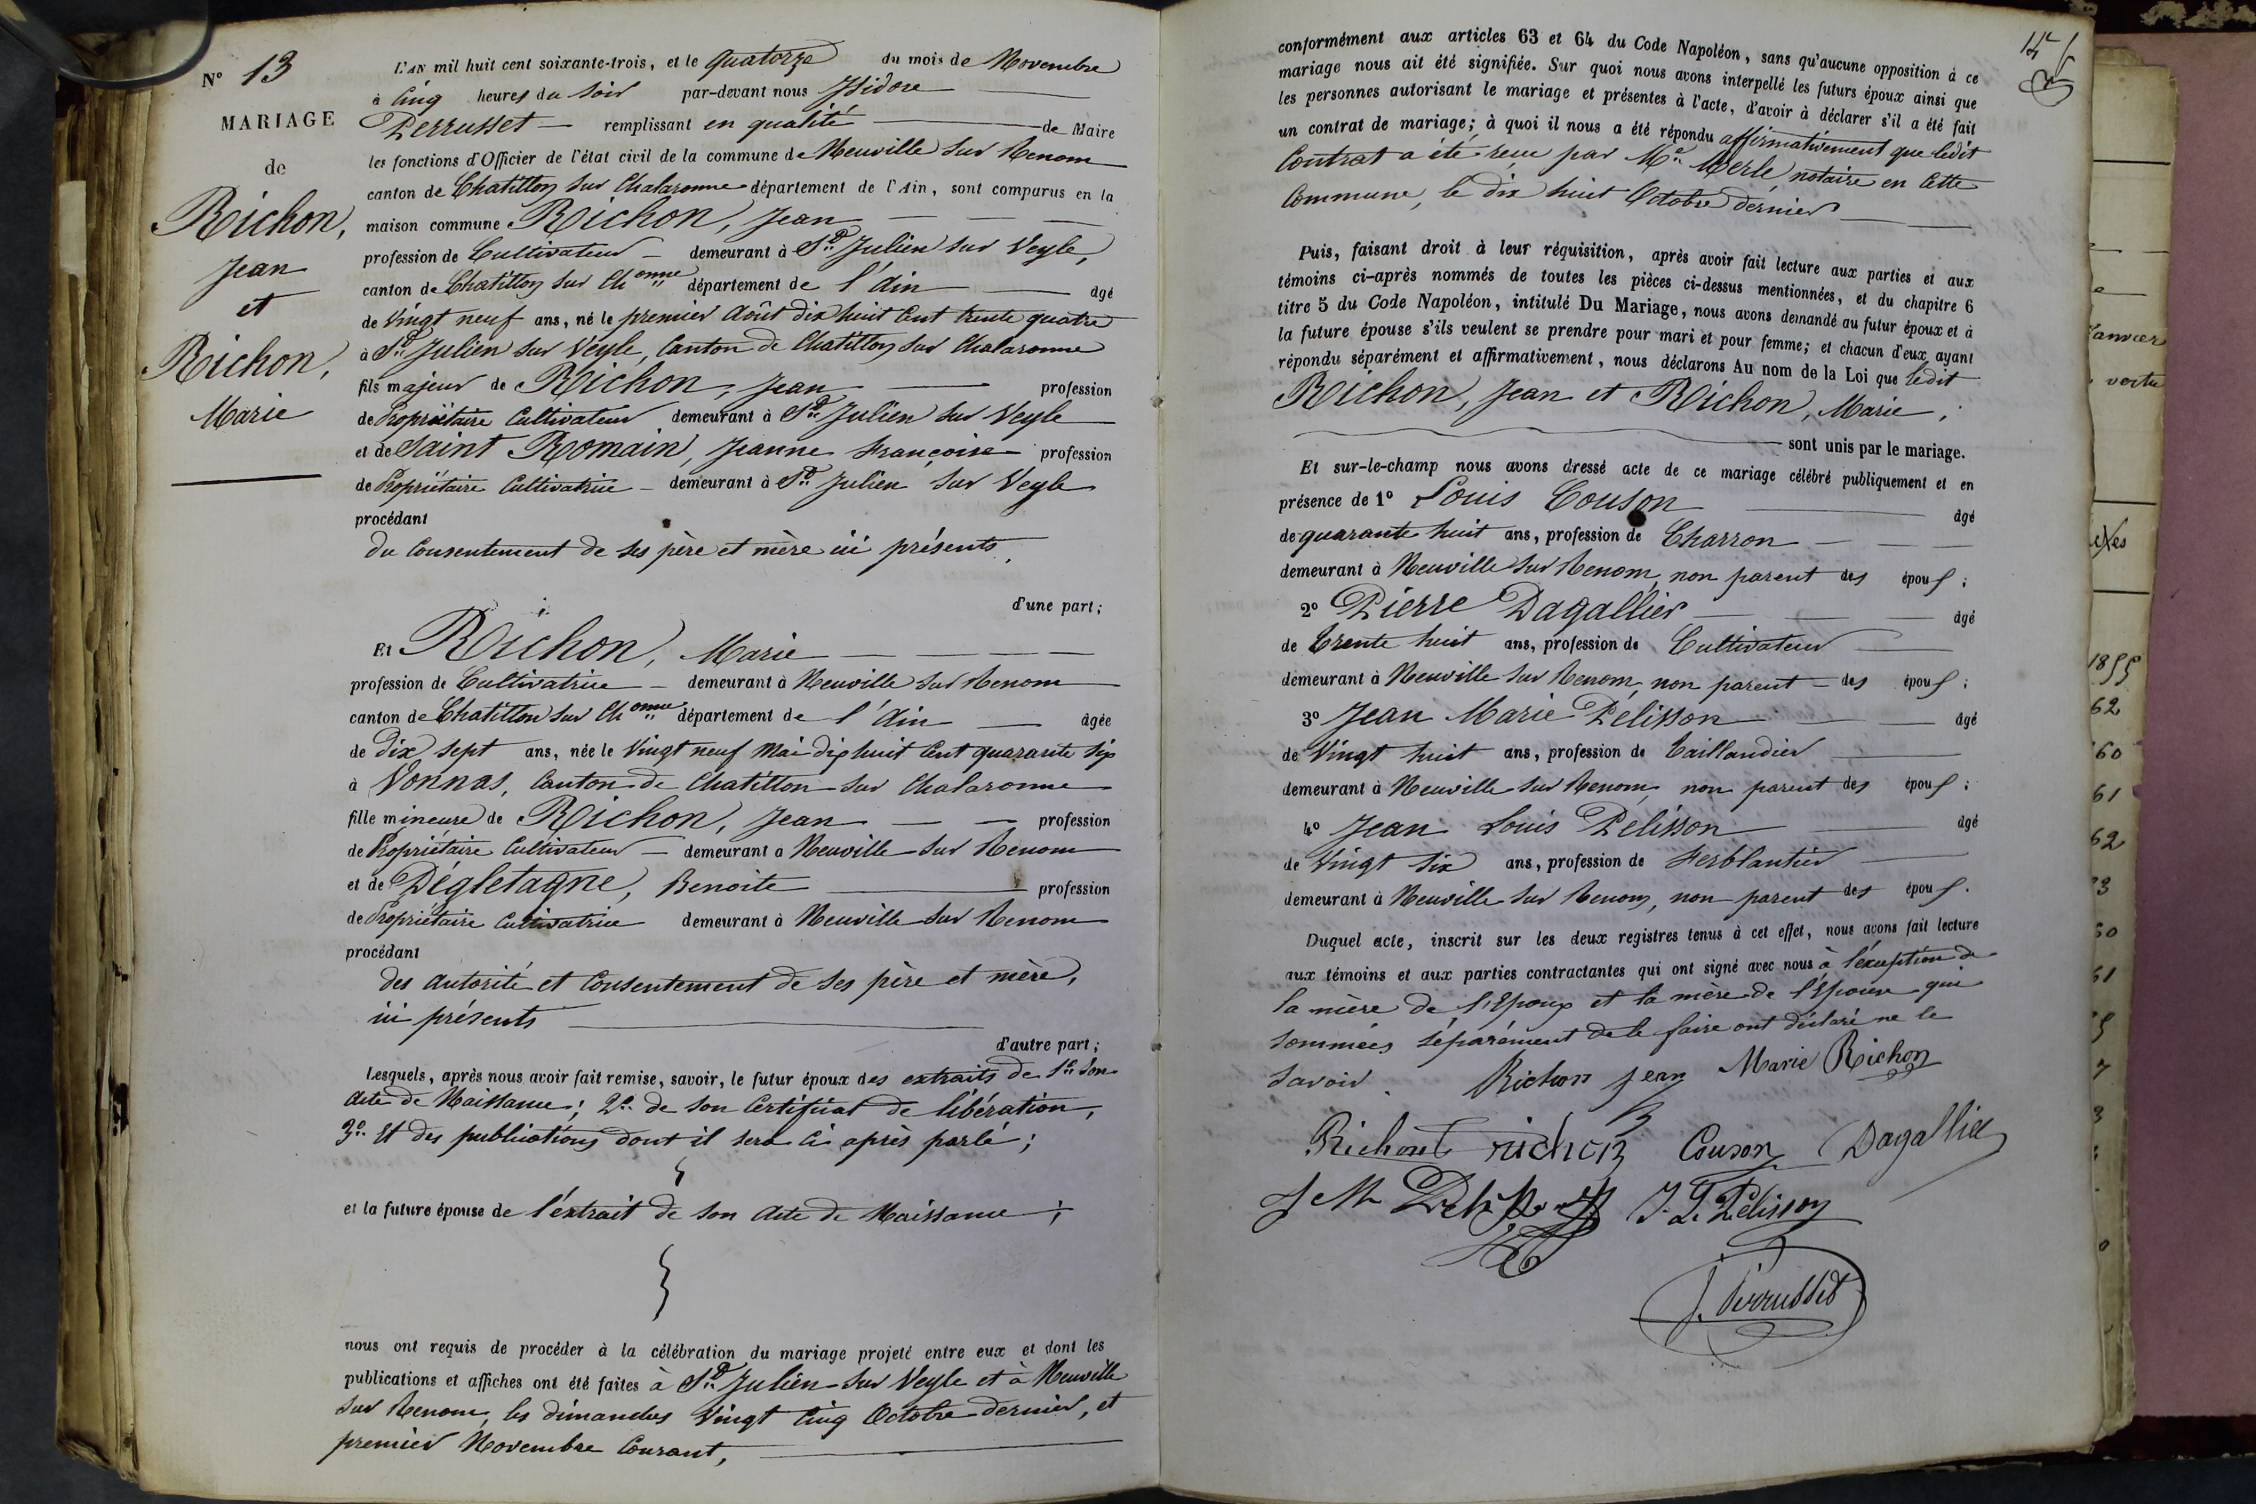 N° 13
MARIAGE
de
Richon,
Jean
et
Richon,
Marie
L'AN mil huit cent soixante-trois, et le quatorze du mois de Novembre
à Cinq heures du Soir par-devant nous Isidore
Perrusset remplissant en qualité de Maire
les fonctions d'Officier de l'état civil de la commune de Neuville sur Renom
canton de Chatillon sur Chalaronne département de l'Ain, sont comparus en la
maison commune Richon, Jean
profession de Cultivateur demeurant à St Julien sur Veyle,
canton de Chatillon sur Chonne département de l'Ain âgé
de Vingt neuf ans, né le premier Août dix huit Cent trente quatre
à St Julien sur Veyle, Canton de Chatillon sur Chalaronne
fils majeur de Richon, Jean profession
de Propriétaire Cultivateur demeurant à St Julien sur Veyle
et de Saint Romain, Jeanne Françoise profession
de Propriétaire Cultivatrice demeurant à St Julien sur Veyle
procédant
du Consentement de ses père et mère ici présents,
d'une part;
Et Richon, Marie
profession de Cultivatrice demeurant à Neuville sur Renom
canton de Chatillon sur Chonne département de l'Ain âgée
de dix sept ans, née le Vingt neuf Mai dix huit Cent quarante six
à Vonnas, Canton de Chatillon sur Chalaronne
fille mineure de Richon, Jean profession
de Propriétaire Cultivateur demeurant à Neuville sur Renom
et de Dégletagne, Benoite profession
de Propriétaire Cultivatrice demeurant à Neuville sur Renom
procédant
des autorité et Consentement de ses père et mère,
ici présents
d'autre part;
Lesquels, après nous avoir fait remise, savoir, le futur époux des extraits de 1° Son
Acte de Naissance; 2° de son Certificat de libération,
3° Et des publications dont il sera Ci après parlé;
et la future épouse de l'extrait de son Acte de Naissance;
nous ont requis de procéder à la célébration du mariage projeté entre eux et dont les
publications et affiches ont été faites à St Julien sur Veyle et à Neuville
sur Renom, les dimanches Vingt Cinq Octobre dernier, et
premier Novembre Courant,
conformément aux articles 63 et 64 du Code Napoléon, sans qu'aucune opposition à ce
mariage nous ait été signifiée. Sur quoi nous avons interpellé les futurs époux ainsi que
les personnes autorisant le mariage et présentes à l'acte, d'avoir à déclarer s'il a été fait
un contrat de mariage; à quoi il nous a été répondu affirmativement que ledit
Contrat a été reçu par Me Merle notaire en Cette
Commune, le dix huit Octobre dernier
Puis, faisant droit à leur réquisition, après avoir fait lecture aux parties et aux
témoins ci-après nommés de toutes les pièces ci-dessus mentionnées, et du chapitre 6
titre 5 du Code Napoléon, intitulé Du Mariage, nous avons demandé au futur époux et à
la future épouse s'ils veulent se prendre pour mari et pour femme; et chacun d'eux ayant
répondu séparément et affirmativement, nous déclarons Au nom de la Loi que ledit
Richon, Jean et Richon, Marie,
sont unis par le mariage.
Et sur-le-champ nous avons dressé acte de ce mariage célébré publiquement et en
présence de 1° Louis Couson âgé
de quarante huit ans, profession de Charron
demeurant à Neuville sur Renom, non parent des époux;
2° Pierre Dagallier âgé
de trente huit ans, profession de Cultivateur
demeurant à Neuville sur Renom, non parent des époux;
3° Jean Marie Pelisson âgé
de Vingt huit ans, profession de Taillandier
demeurant à Neuville sur Renom, non parent des époux;
4° Jean Louis Pélisson âgé
de Vingt six ans, profession de Ferblantier
demeurant à Neuville sur Renom, non parent des époux.
Duquel acte, inscrit sur les deux registres tenus à cet effet, nous avons fait lecture
aux témoins et aux parties contractantes qui ont signé avec nous à l'exception de
la mère de l'Epoux et la mère de l'Epouse qui
sommées séparément de le faire ont déclaré ne le
savoir.
Richon Jean Marie Richon
Richon richon Couson Dagallier
J M Pelisson J. L. Pélisson
J. Perrusset
janvier
vertu
1855
62
60
61
62